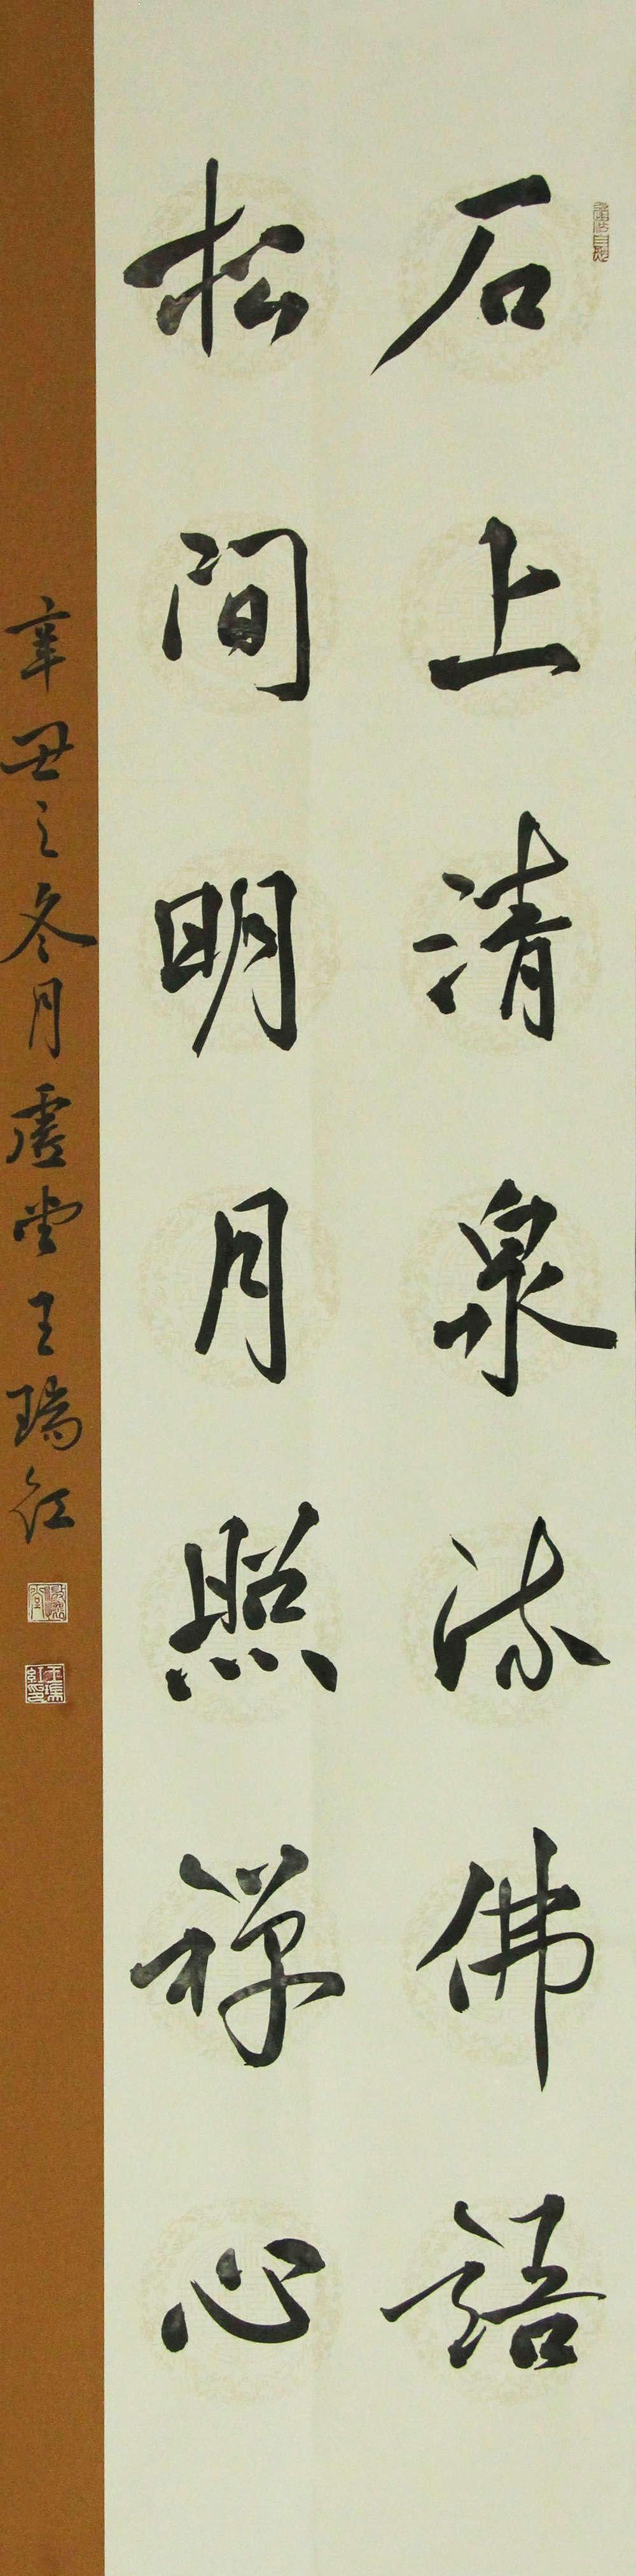 石上清泉流佛語
松间明月照禅心
辛丑之冬月虚堂王瑞红
王瑞红印